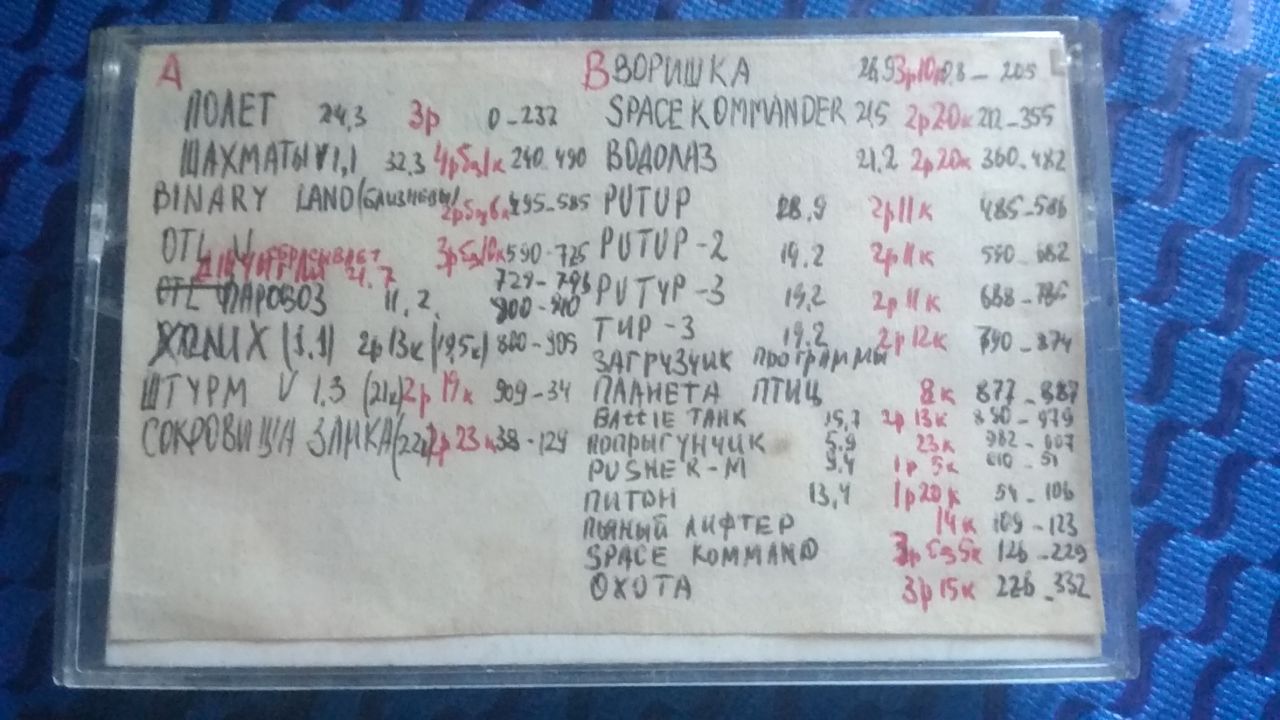 А
ПОЛЕТ 24,3 3р 0-232
ШАХМАТЫ V1,1 32,3 4р5з1к 240-490
BINARY LAND (БЛИЗНЕЦЫ) 2р5з6к 495-585
OTL V 3р5з10к 590-725
21,7 729-793
OTL ПАРОВОЗ 11,2,
XONIX (1.1) 2р13к (19,5к) 800-905
ШТУРМ V 1.3 (21к) 2р 19к 909-34
СОКРОВИЩА ЗЛИКА (22к) 2р23к 38-129
В
ВОРИШКА 26,9 3р10к 0,8-205
SPACE KOMMANDER 21,5 2р20к 212-355
ВОДОЛАЗ 21,2 2р20к 360-482
PUTUP 28,9 2р11к 485-586
PUTUP-2 19,2 2р11к 590-682
PUTYP-3 19,2 2р11к 688-786
ТИР-3 19,2 2р12к 790-874
ЗАГРУЗЧИК ПРОГРАММЫ
ПЛАНЕТА ПТИЦ 8к 877-887
BAttlE TANK 15,7 2р13к 890-979
ПОПРЫГУНЧИК 5,9 23к 982-007
PUSHER-M 9,4 1р5к 010-51
ПИТОН 13,4 1р20к 54-106
ПЬЯНЫЙ ЛИФТЕР 14к 109-123
SPACE KOMMAND 3р5з5к 126-229
ОХОТА 3р15к 226-332